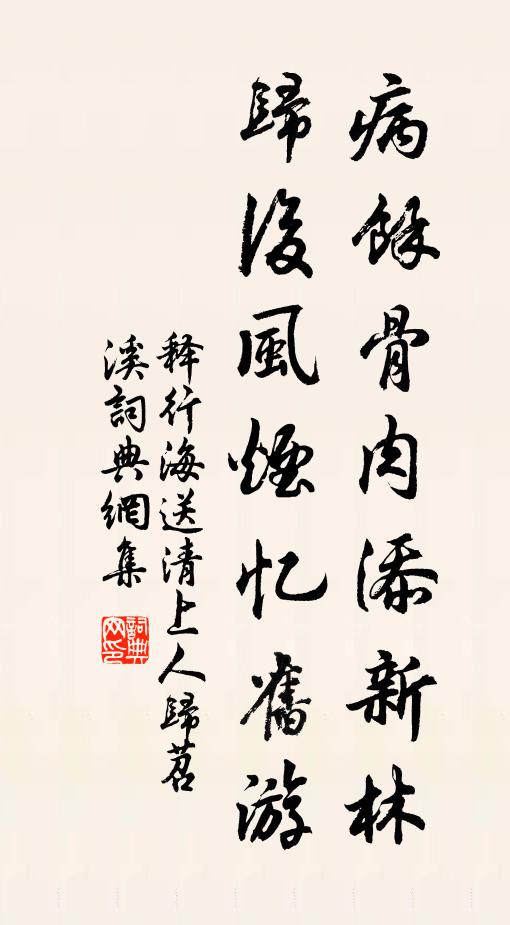 病餘骨肉添新林
歸後風煙忆舊游
释行海送清上人歸苕
溪詞典網集
詞典
网印